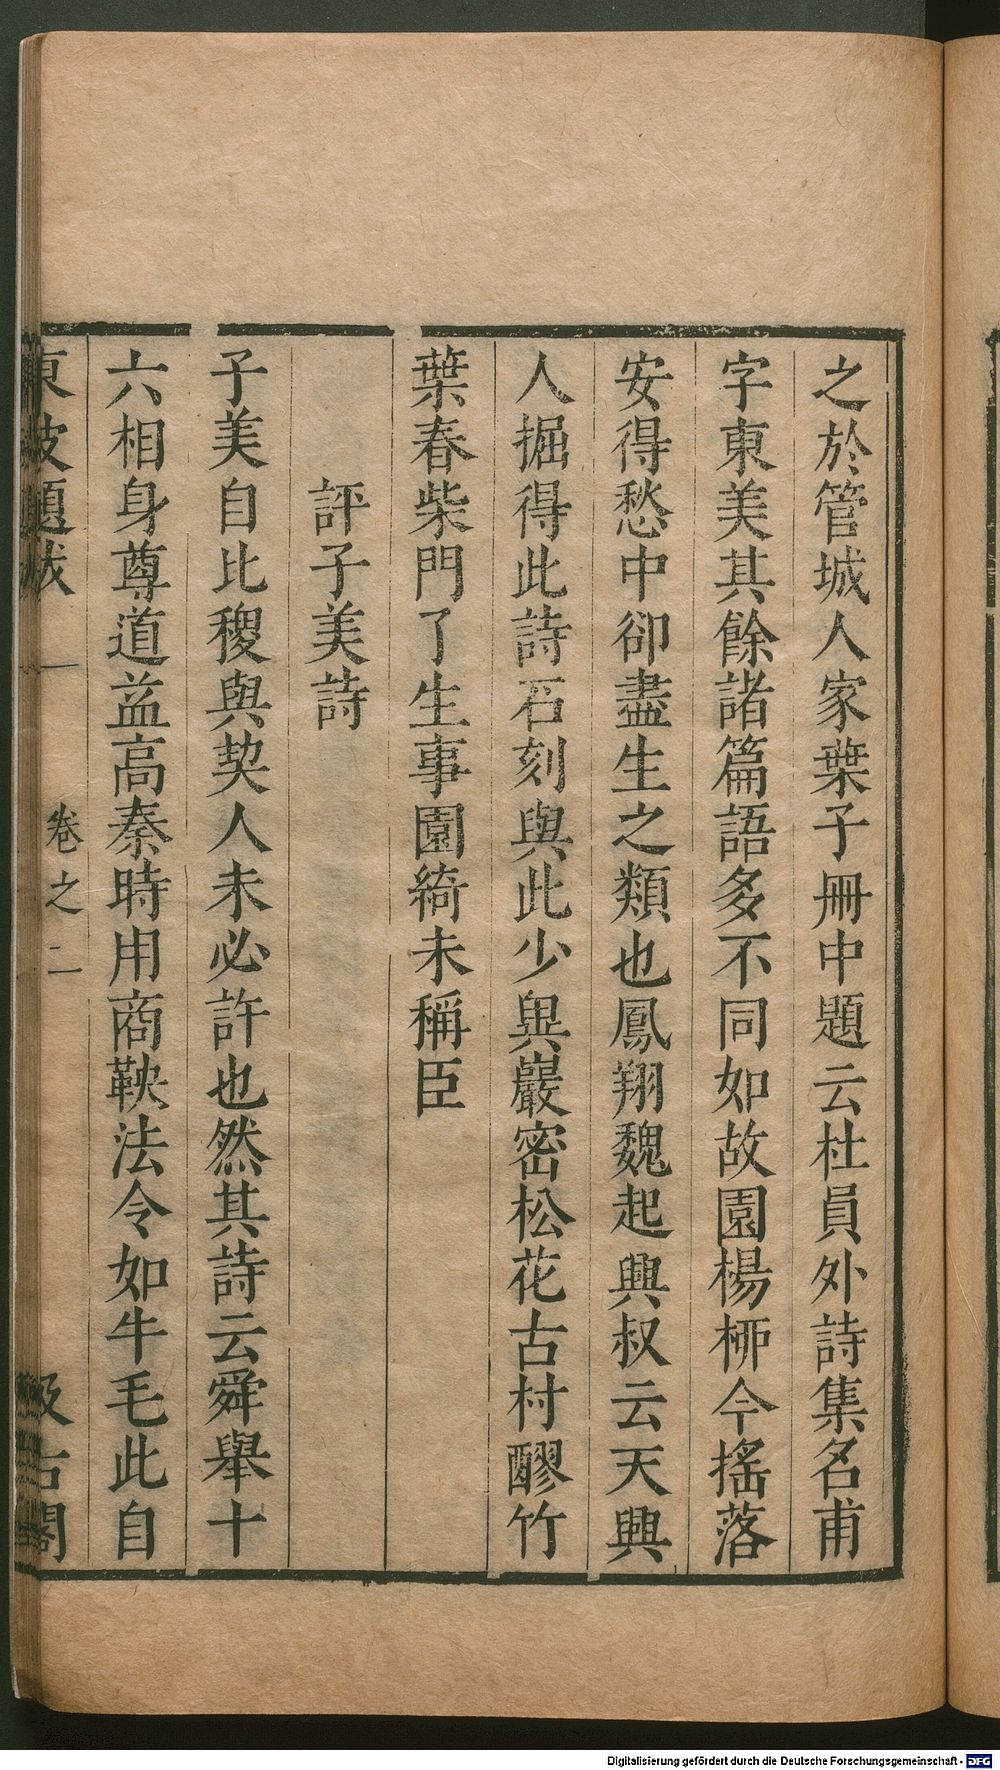 之於管城人家葉子冊中題云杜員外詩集名甫
字東美其餘諸篇語多不同如故園楊栁今搖落
安得愁中卻盡生之類也鳳翔魏起興叔云天興
人掘得此詩石刻與此少異巖密松花古村醪竹
葉春柴門了生事園綺未稱臣
評子美詩
子美自比稷與契人未必許也然其詩云舜舉十
六相身尊道益高秦時用商鞅法令如牛毛此自
東坡題跋 卷之二 汲古閣
Digitalisierung gefördert durch die Deutsche Forschungsgemeinschaft - DFG